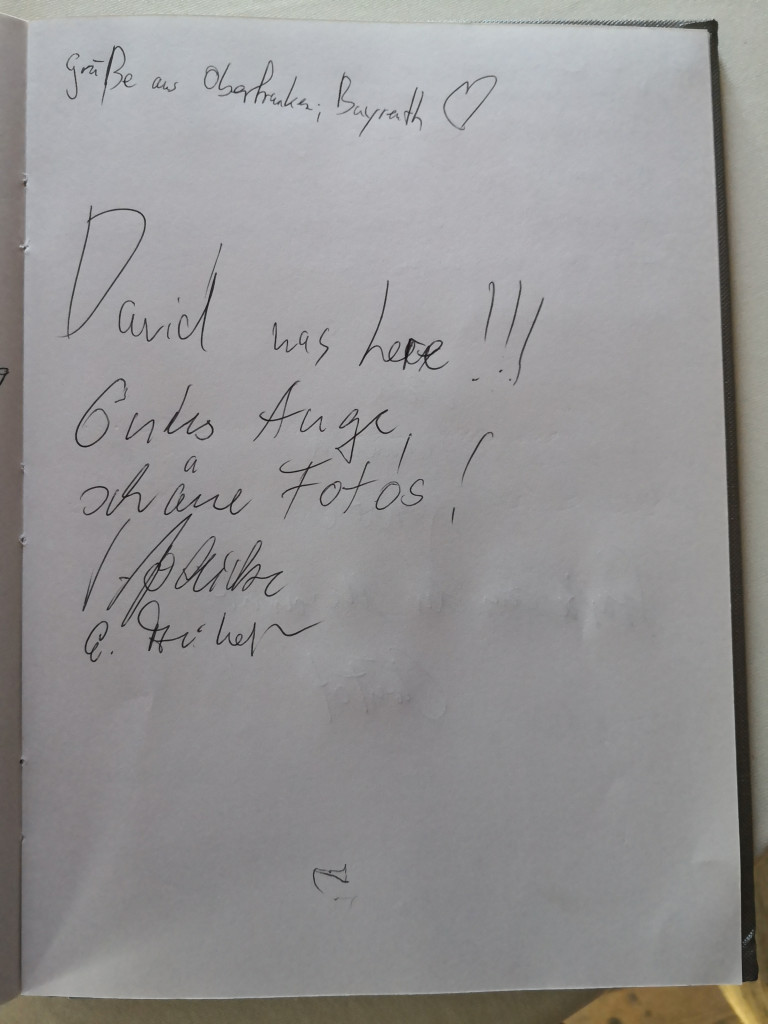 Grüße aus Oberfranken, Bayreuth ♡
David was here !!!
Gutes Auge,
schöne Fotos!